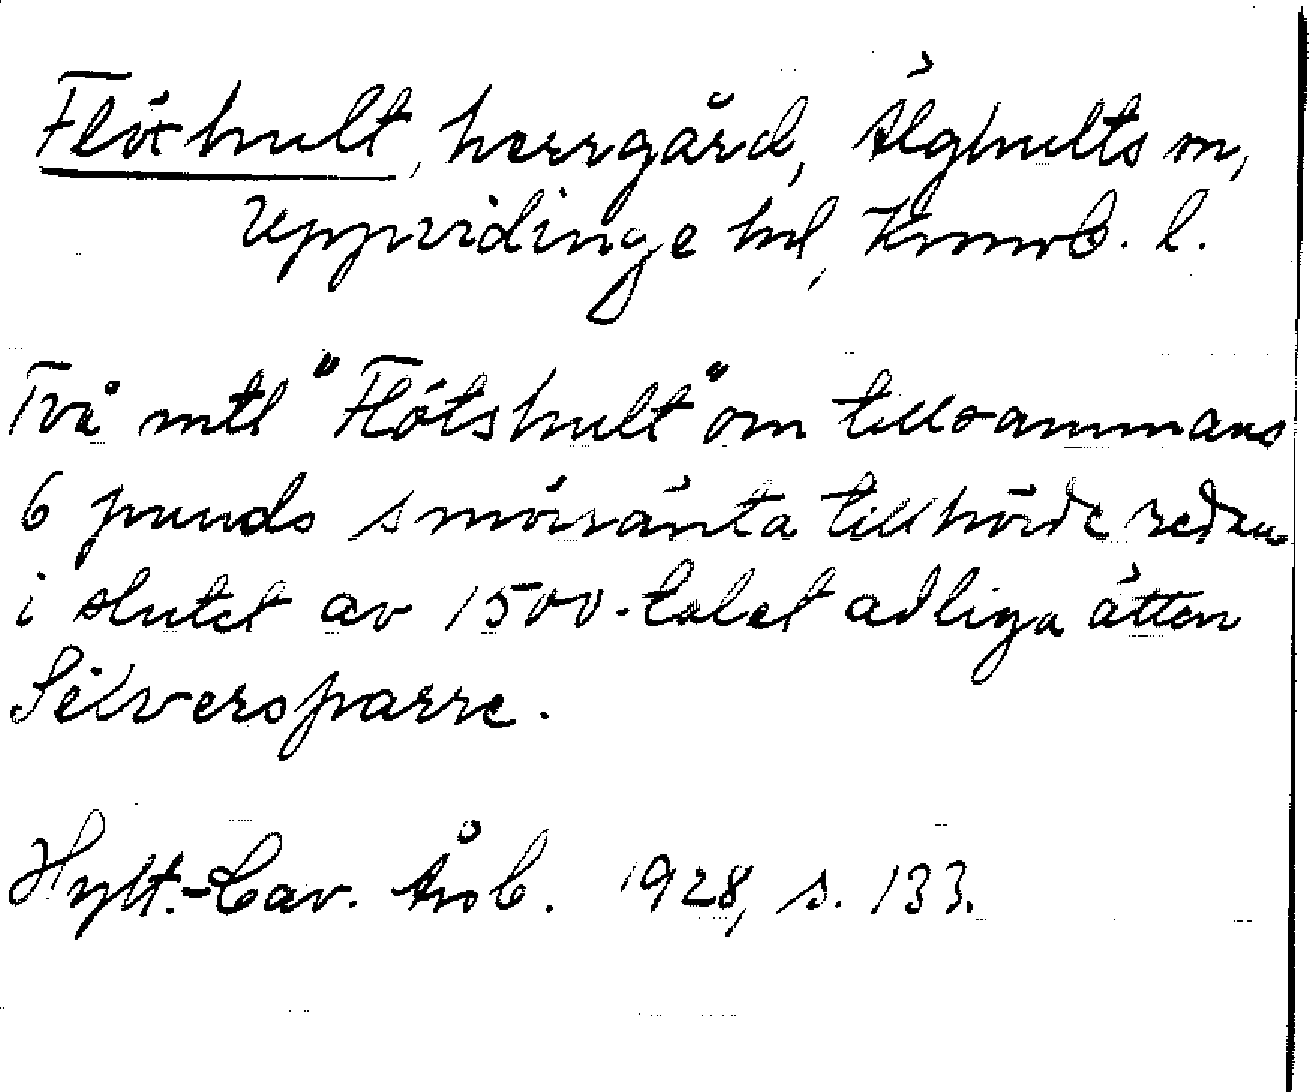 Flöxhult, herrgård, Älghults sn,
Uppvidinge hd, Kronob. l.
Två mtl "Flötshult" om tillsammans
6 punds smörränta tillhörde redan
i slutet av 1500-talet adliga ätten
Silversparre.
Hylt.-Cav. Årsb. 1928, s. 133.